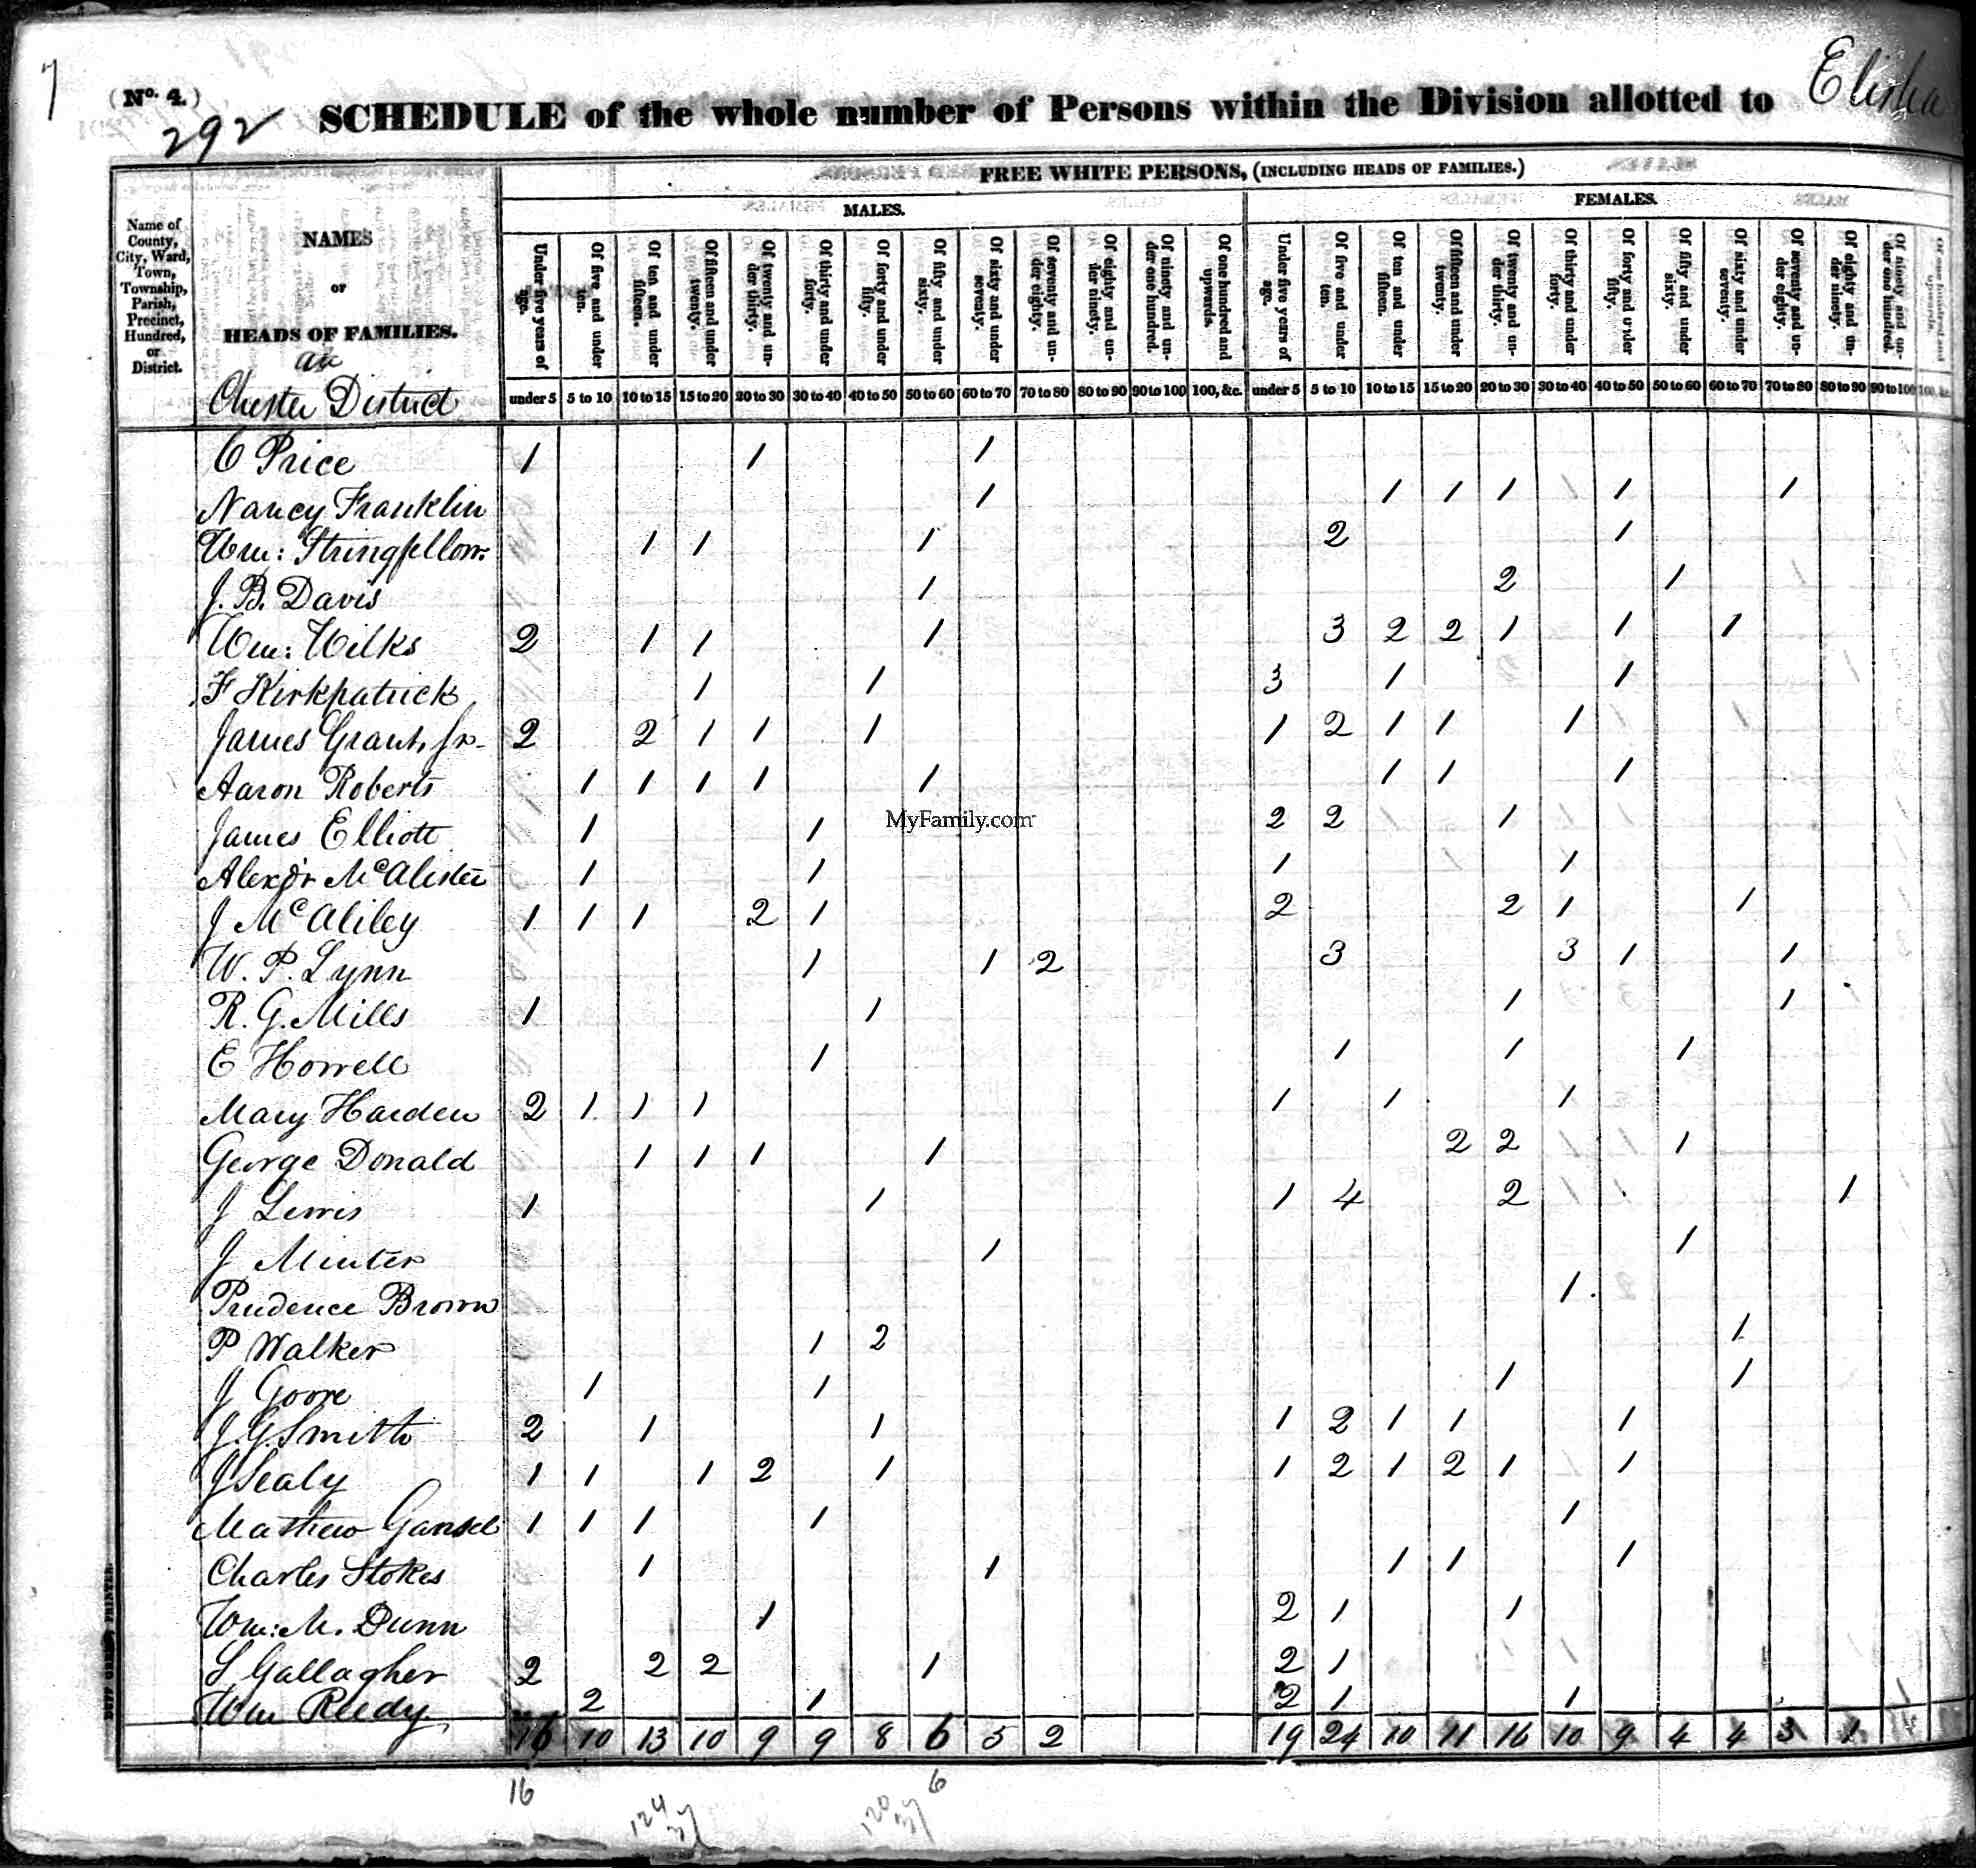 7
(No. 4.)
292
SCHEDULE of the whole number of Persons within the Division allotted to Elisha
FREE WHITE PERSONS, (INCLUDING HEADS OF FAMILIES.)
MALES. FEMALES.
Name of County, City, Ward, Town, Township, Parish, Precinct, Hundred, or District.
NAMES
OR
HEADS OF FAMILIES.
Chester District
Under five years of age. Of five and under ten. Of ten and under fifteen. Of fifteen and under twenty. Of twenty and under thirty. Of thirty and under forty. Of forty and under fifty. Of fifty and under sixty. Of sixty and under seventy. Of seventy and under eighty. Of eighty and under ninety. Of ninety and under one hundred. Of one hundred and upwards. Under five years of age. Of five and under ten. Of ten and under fifteen. Of fifteen and under twenty. Of twenty and under thirty. Of thirty and under forty. Of forty and under fifty. Of fifty and under sixty. Of sixty and under seventy. Of seventy and under eighty. Of eighty and under ninety. Of ninety and under one hundred. Of one hundred and upwards.
under 5 5 to 10 10 to 15 15 to 20 20 to 30 30 to 40 40 to 50 50 to 60 60 to 70 70 to 80 80 to 90 90 to 100 100, &c. under 5 5 to 10 10 to 15 15 to 20 20 to 30 30 to 40 40 to 50 50 to 60 60 to 70 70 to 80 80 to 90 90 to 100 100, &c.
C Price 1 1 1
Nancy Franklin 1 1 1 1 1 1
Wm: Stringfellow 1 1 1 2 1
J. B. Davis 1 2 1
Wm: Wilks 2 1 1 1 3 2 2 1 1 1
F Kirkpatrick 1 1 3 1 1
James Grant, Jr- 2 2 1 1 1 1 2 1 1 1
Aaron Roberts 1 1 1 1 1 1 1 1
James Elliott 1 1 2 2 1
Alexdr McAlister 1 1 1 1
J McAliley 1 1 1 2 1 2 2 1 1
W. P. Lynn 1 1 2 3 3 1 1
R. G. Mills 1 1 1 1
E Howell 1 1 1 1
Mary Harden 2 1 1 1 1 1 1
George Donald 1 1 1 1 2 2 1
J Lewis 1 1 1 4 2 1
J Minter 1 1
Prudence Brown 1
P Walker 1 2 1
J Goore 1 1 1 1
J. G. Smith 2 1 1 1 2 1 1 1
J Sealy 1 1 1 2 1 1 2 1 2 1 1
Mathew 1 1 1 1 1
Charles Stokes 1 1 1 1 1
Wm: M. Dunn 1 2 1 1
S Gallagher 2 2 2 1 2 1
Wm Reedy 2 1 2 1 1
16 10 13 10 9 9 8 6 5 2 19 24 10 11 16 10 9 4 4 3 1
16 6
124
120
MyFamily.com